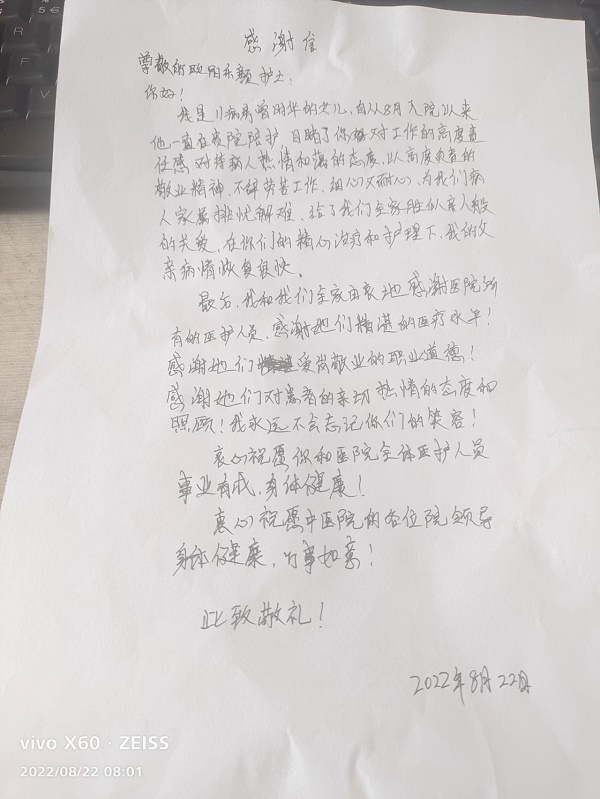 感谢信
尊敬的欧阳 颜护士:
你好!
我是11病房曾明华的女儿,自从8月入院以来
他一直在贵院陪护 目睹了你们对工作的高度责
任感 对待病人热情和蔼的态度,以高度负责的
敬业精神,不辞劳苦工作,细心又耐心,为我们病
人家属排忧解难,给了我们全家胜似亲人般
的关爱,在你们的精心治疗和护理下,我的父
亲病情恢复很快。
最后,我和我们全家由衷地感谢医院所
有的医护人员,感谢她们精湛的医疗水平!
感谢她们爱岗敬业的职业道德!
感谢她们对患者的亲切 热情的态度和
照顾!我永远不会忘记你们的笑容!
衷心祝愿你和医院全体医护人员
事业有成,身体健康!
衷心祝愿中医院的各位院领导
身体健康,万事如意!
此致敬礼!
2022年8月22日
vivo X60 · ZEISS
2022/08/22 08:01